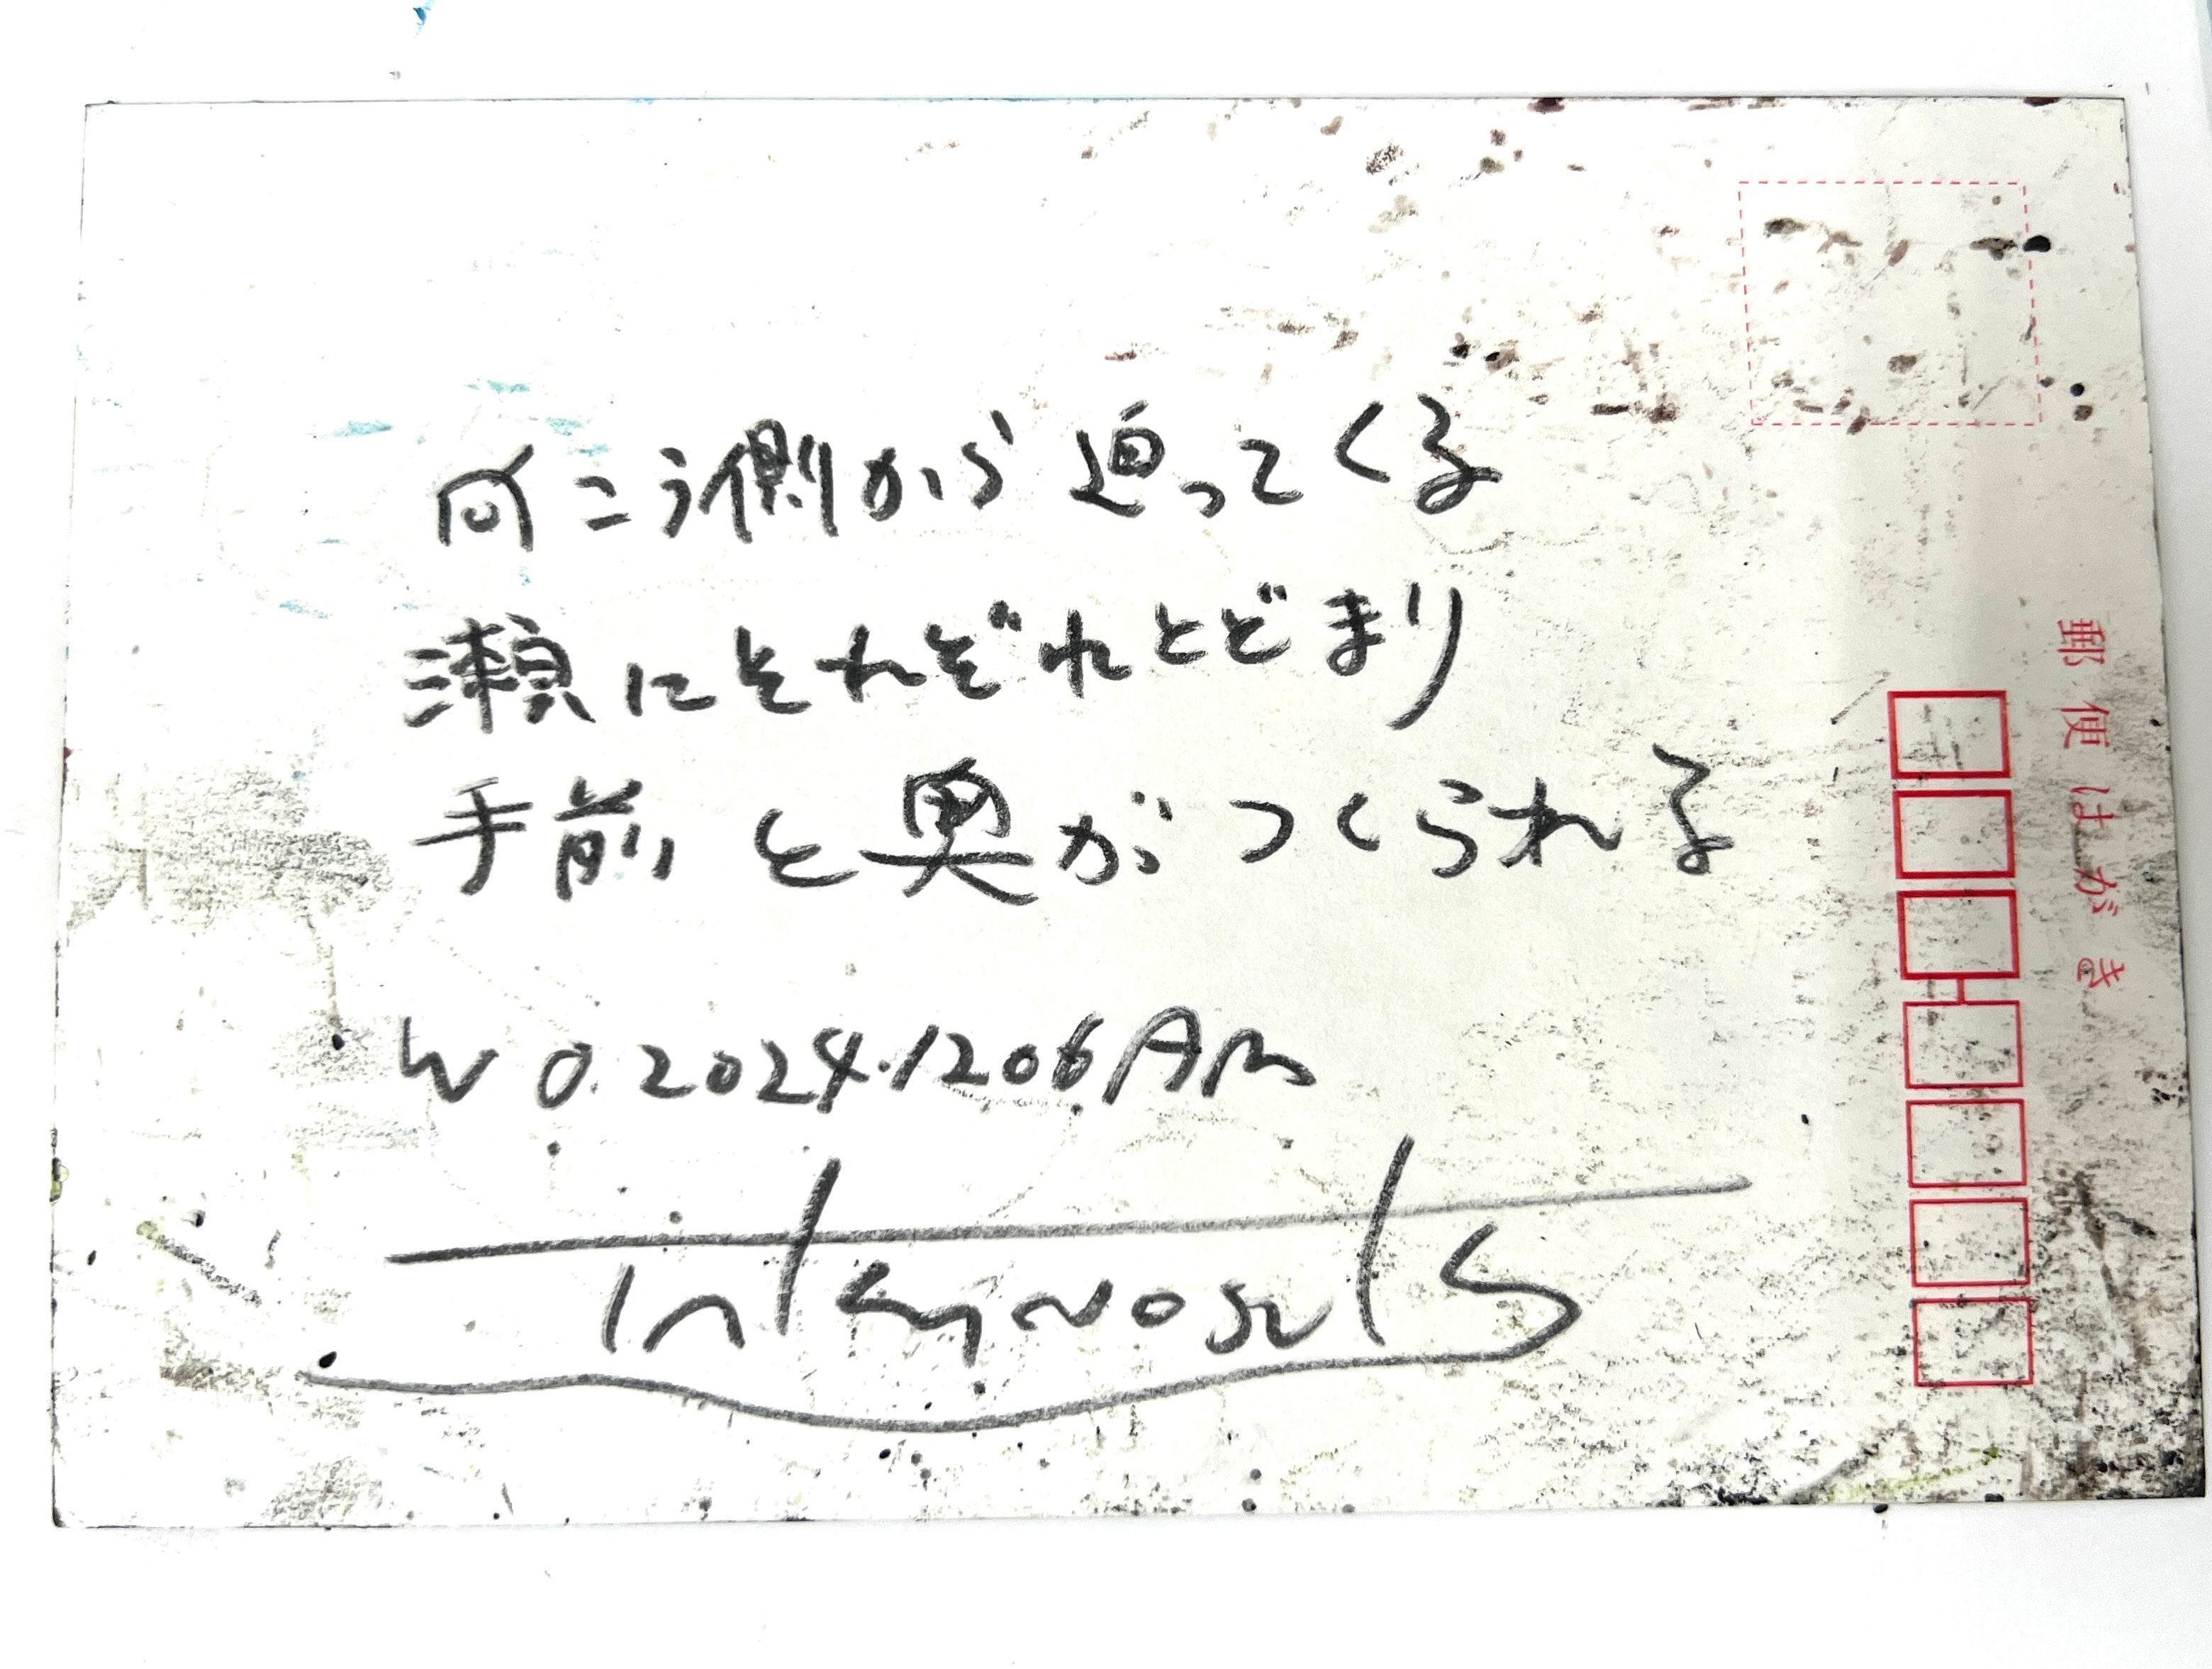 向こう側から迫ってくる
瀬にそれぞれとどまり
手前と奥がつくられる
W 0.2024.1206AM
郵便はがき